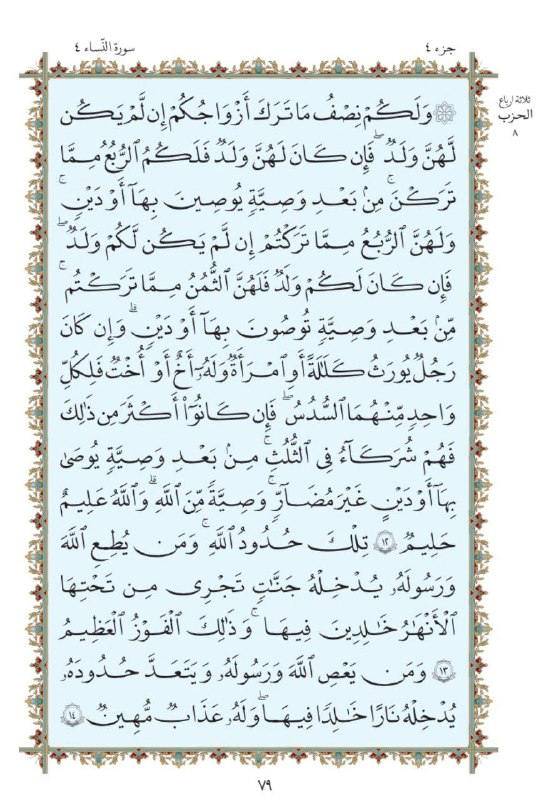 سورة النّساء ٤
جزء ٤
ثلاثة ارباع
الحزب
٨
۞ وَلَكُمْ نِصْفُ مَا تَرَكَ أَزْوَاجُكُمْ إِن لَّمْ يَكُن
لَّهُنَّ وَلَدٌ ۖ فَإِن كَانَ لَهُنَّ وَلَدٌ فَلَكُمُ الرُّبُعُ مِمَّا
تَرَكْنَ ۚ مِنۢ بَعْدِ وَصِيَّةٍ يُوصِينَ بِهَآ أَوْ دَيْنٍ ۚ
وَلَهُنَّ ٱلرُّبُعُ مِمَّا تَرَكْتُمْ إِن لَّمْ يَكُن لَّكُمْ وَلَدٌ ۖ
فَإِن كَانَ لَكُمْ وَلَدٌ فَلَهُنَّ ٱلثُّمُنُ مِمَّا تَرَكْتُم ۚ
مِّنۢ بَعْدِ وَصِيَّةٍ تُوصُونَ بِهَآ أَوْ دَيْنٍ ۗ وَإِن كَانَ
رَجُلٌ يُورَثُ كَلَـٰلَةً أَوِ ٱمْرَأَةٌ وَلَهُۥٓ أَخٌ أَوْ أُخْتٌ فَلِكُلِّ
وَٰحِدٍ مِّنْهُمَا ٱلسُّدُسُ ۚ فَإِن كَانُوٓا۟ أَكْثَرَ مِن ذَٰلِكَ
فَهُمْ شُرَكَآءُ فِى ٱلثُّلُثِ ۚ مِنۢ بَعْدِ وَصِيَّةٍ يُوصَىٰ
بِهَآ أَوْ دَيْنٍ غَيْرَ مُضَآرٍّ ۚ وَصِيَّةً مِّنَ ٱللَّهِ ۗ وَٱللَّهُ عَلِيمٌ
حَلِيمٌ ١٢ تِلْكَ حُدُودُ ٱللَّهِ ۚ وَمَن يُطِعِ ٱللَّهَ
وَرَسُولَهُۥ يُدْخِلْهُ جَنَّـٰتٍ تَجْرِى مِن تَحْتِهَا
ٱلْأَنْهَـٰرُ خَـٰلِدِينَ فِيهَا ۚ وَذَٰلِكَ ٱلْفَوْزُ ٱلْعَظِيمُ
١٣ وَمَن يَعْصِ ٱللَّهَ وَرَسُولَهُۥ وَيَتَعَدَّ حُدُودَهُۥ
يُدْخِلْهُ نَارًا خَـٰلِدًا فِيهَا وَلَهُۥ عَذَابٌ مُّهِينٌ ١٤
٧٩